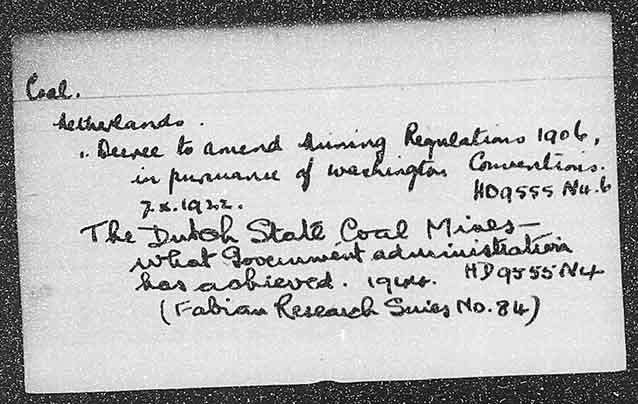 Coal.
Netherlands.
1. Decree to amend Mining Regulations 1906,
in pursuance of Washington Conventions.
7.x.1922. HD9555 N4.6
The Dutch State Coal Mines –
what Government administration
has achieved. 1944. HD9555 N4
(Fabian Research Series No. 84)